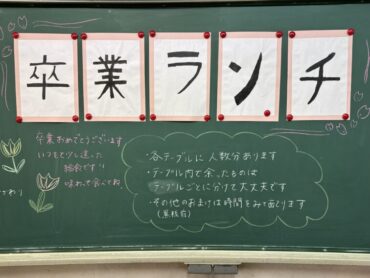 卒業ランチ
卒業おめでとうございます
いつもと少し違った
給食です
味わって食べてね
・各テーブルに人数分あります
・テーブル内で余ったものは
テーブルごとに分けて大丈夫です
・その他のおまけは時間をみて配ります